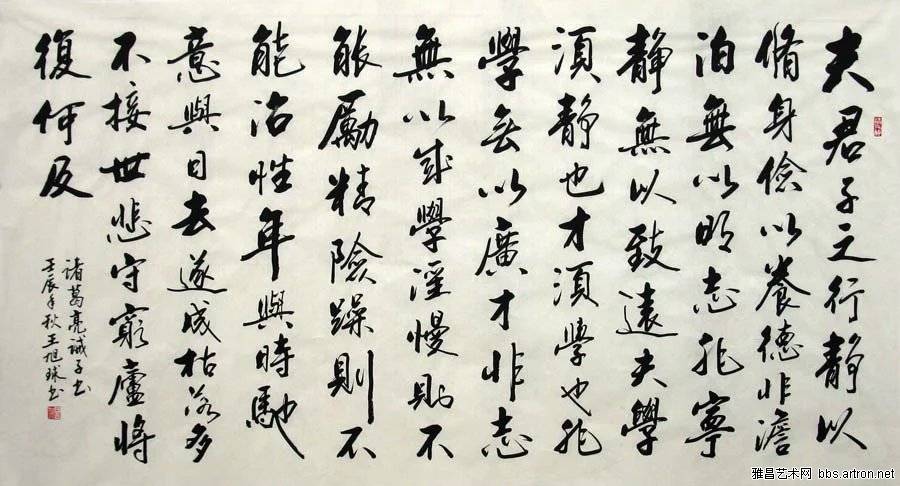 夫君子之行靜以
脩身儉以養德非澹
泊無以明志非寧
靜無以致遠夫學
須靜也才須學也非
學無以廣才非志
無以成學淫慢則不
能勵精險躁則不
能治性年與時馳
意與日去遂成枯落多
不接世悲守窮廬將
復何及
諸葛亮誡子書
壬辰年秋王旭球書
雅昌艺术网 bbs.artron.net